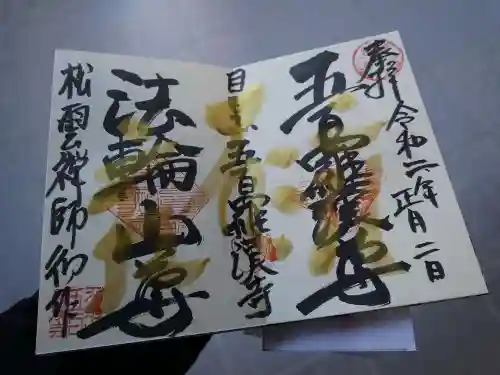 奉拝
令和二年
正月二日
五百羅漢尊
目黒五百羅漢寺
法輪山尊
松雲禅師御作